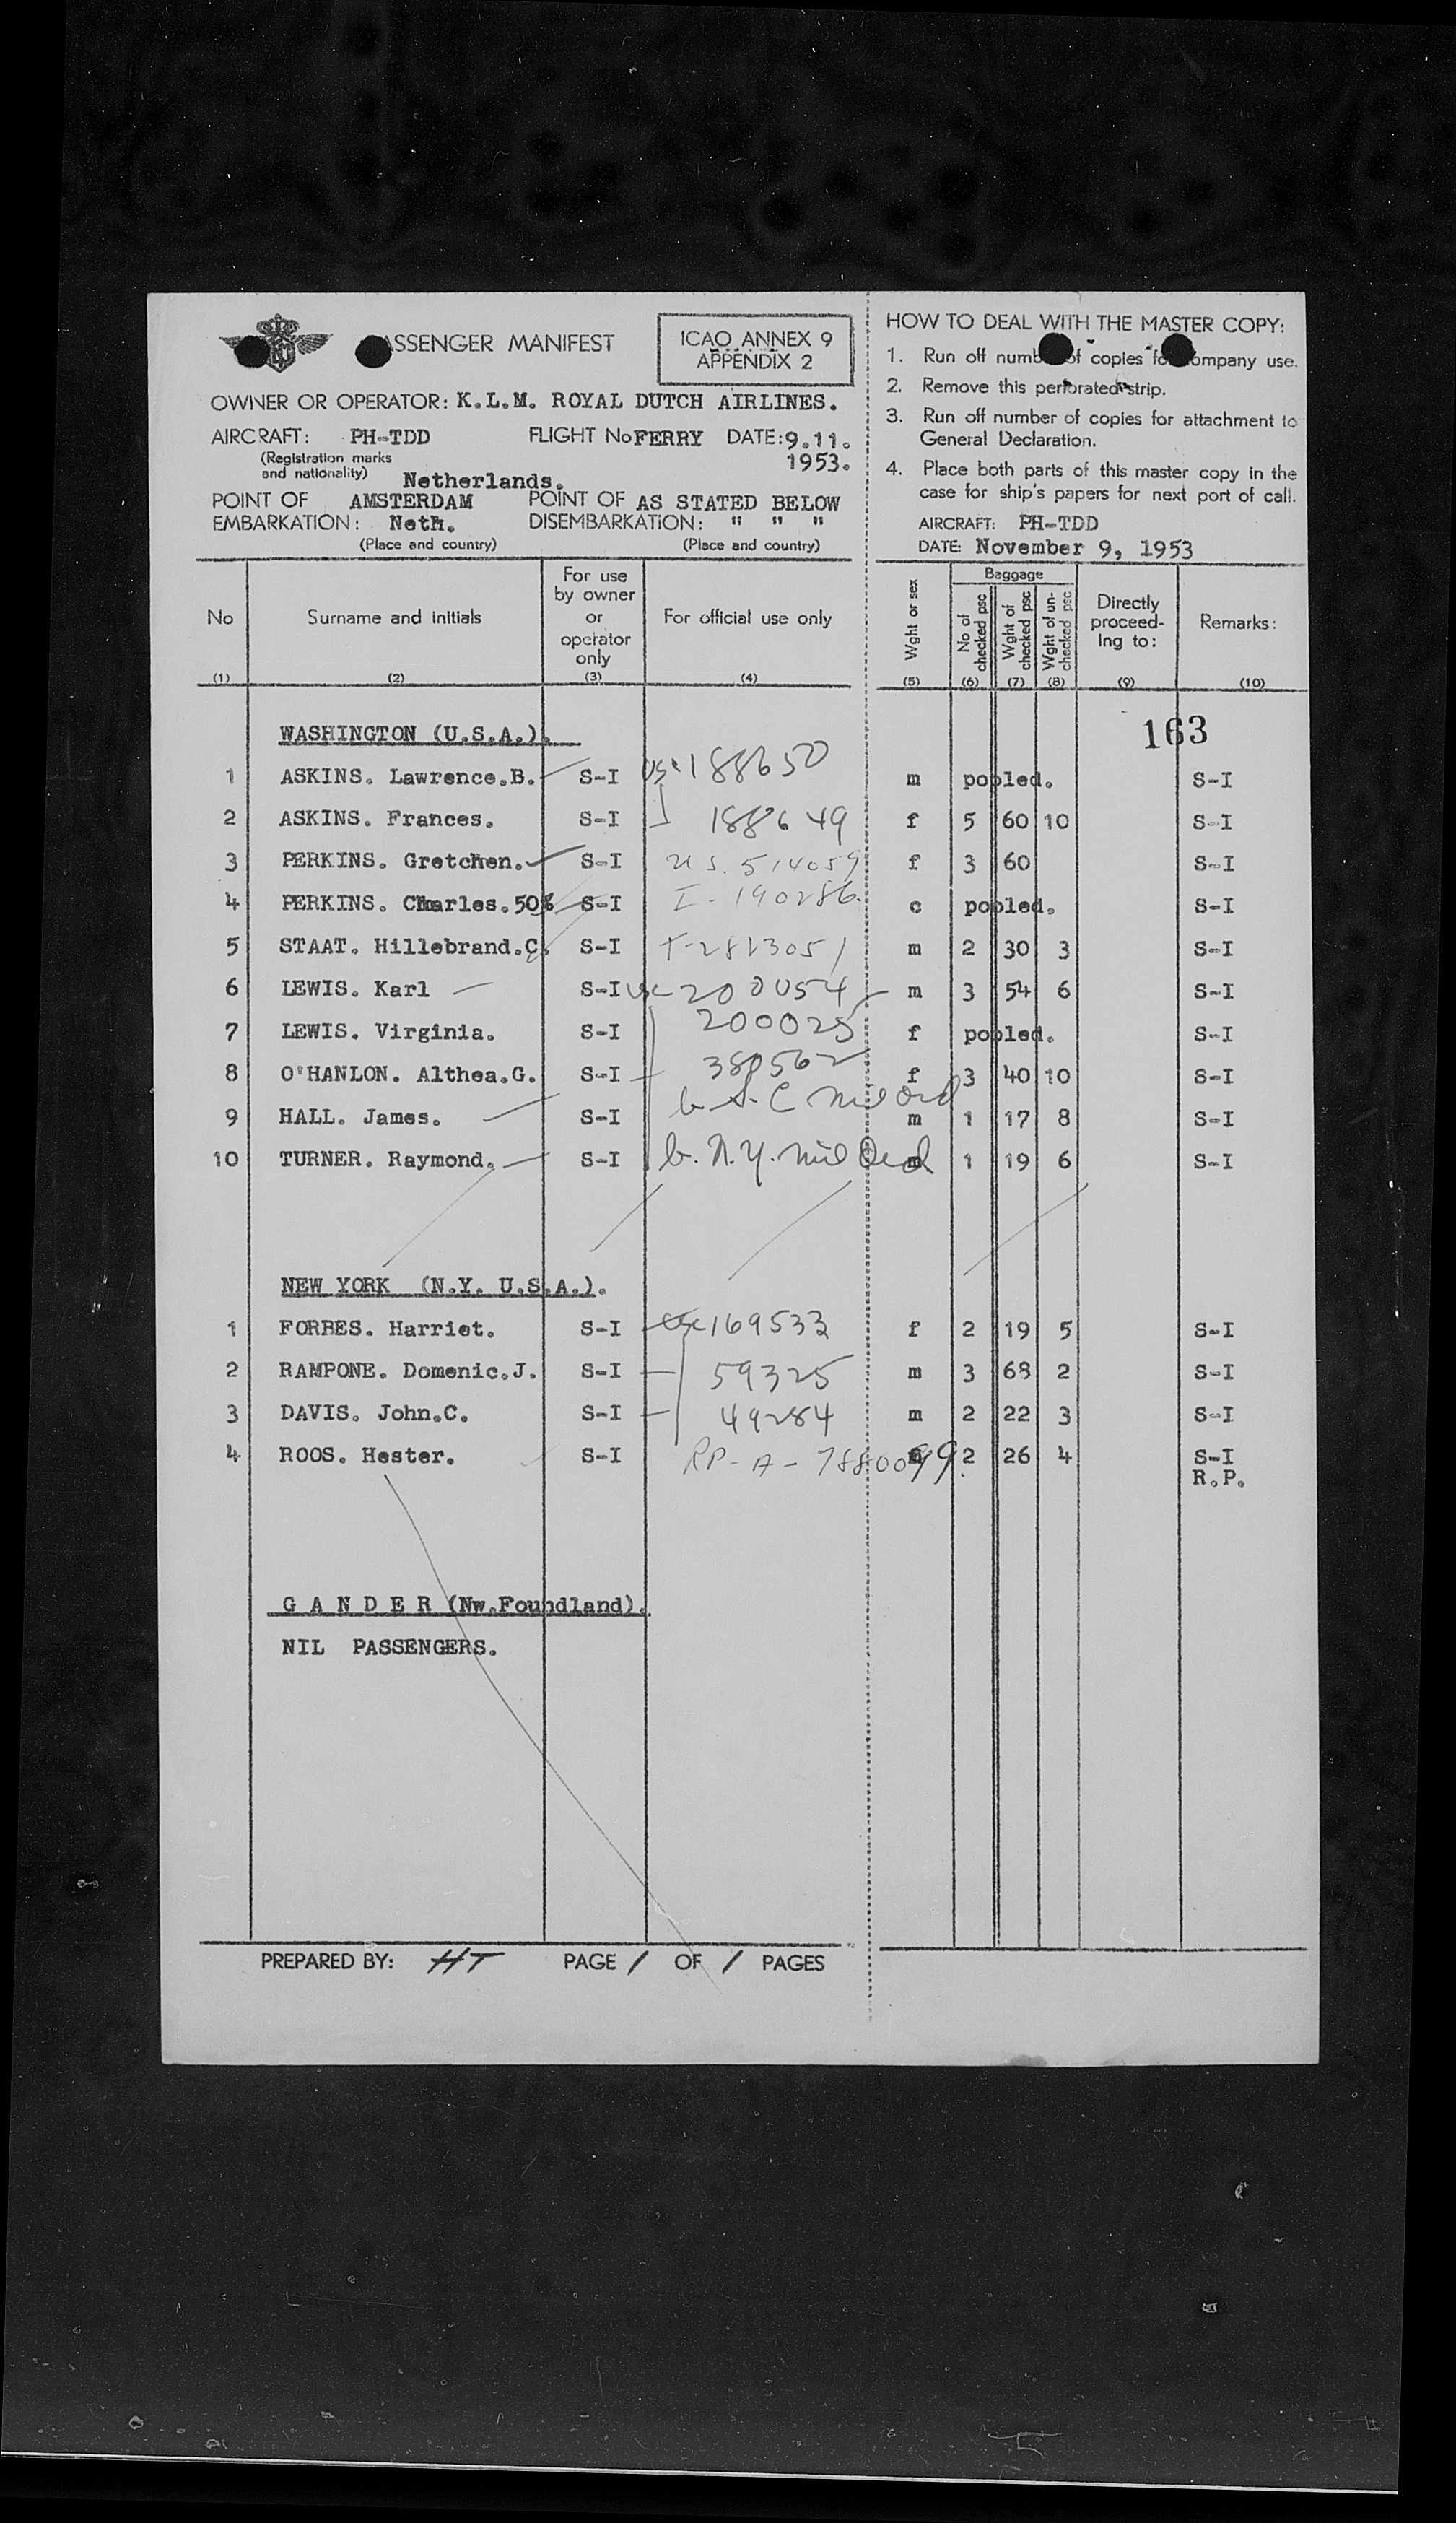 PASSENGER MANIFEST
ICAO ANNEX 9
APPENDIX 2
OWNER OR OPERATOR: K.L.M. ROYAL DUTCH AIRLINES.
AIRCRAFT: PH-TDD FLIGHT No FERRY DATE: 9.11.
(Registration marks 1953.
and nationality) Netherlands.
POINT OF AMSTERDAM POINT OF AS STATED BELOW
EMBARKATION: Neth. DISEMBARKATION: " " "
(Place and country) (Place and country)
HOW TO DEAL WITH THE MASTER COPY:
1. Run off number of copies for company use.
2. Remove this perforated strip.
3. Run off number of copies for attachment to
General Declaration.
4. Place both parts of this master copy in the
case for ship's papers for next port of call.
AIRCRAFT: PH-TDD
DATE: November 9, 1953
No Surname and initials For use by owner or operator only For official use only Wght or sex Baggage No of checked psc Wght of checked psc Wght of un-checked psc Directly proceed-ing to: Remarks:
(1) (2) (3) (4) (5) (6) (7) (8) (9) (10)
163
WASHINGTON (U.S.A.).
1 ASKINS. Lawrence.B. S-I 188650 m pooled. S-I
2 ASKINS. Frances. S-I 188649 f 5 60 10 S-I
3 PERKINS. Gretchen. S-I U.S. 514059 f 3 60 S-I
4 PERKINS. Charles.50% S-I I-190286 c pooled. S-I
5 STAAT. Hillebrand.C. S-I T-2823051 m 2 30 3 S-I
6 LEWIS. Karl S-I usc 200054 m 3 54 6 S-I
7 LEWIS. Virginia. S-I 200025 f pooled. S-I
8 O'HANLON. Althea.G. S-I 380562 f 3 40 10 S-I
9 HALL. James. S-I b. S.C mil ord m 1 17 8 S-I
10 TURNER. Raymond. S-I b. N.Y. mil Ord m 1 19 6 S-I
NEW YORK (N.Y. U.S.A.).
1 FORBES. Harriet. S-I usc 169533 f 2 19 5 S-I
2 RAMPONE. Domenic.J. S-I 59325 m 3 68 2 S-I
3 DAVIS. John.C. S-I 49284 m 2 22 3 S-I
4 ROOS. Hester. S-I RP-A-7880099. 2 26 4 S-I
R.P.
G A N D E R (Nw.Foundland).
NIL PASSENGERS.
PREPARED BY: HT PAGE 1 OF 1 PAGES